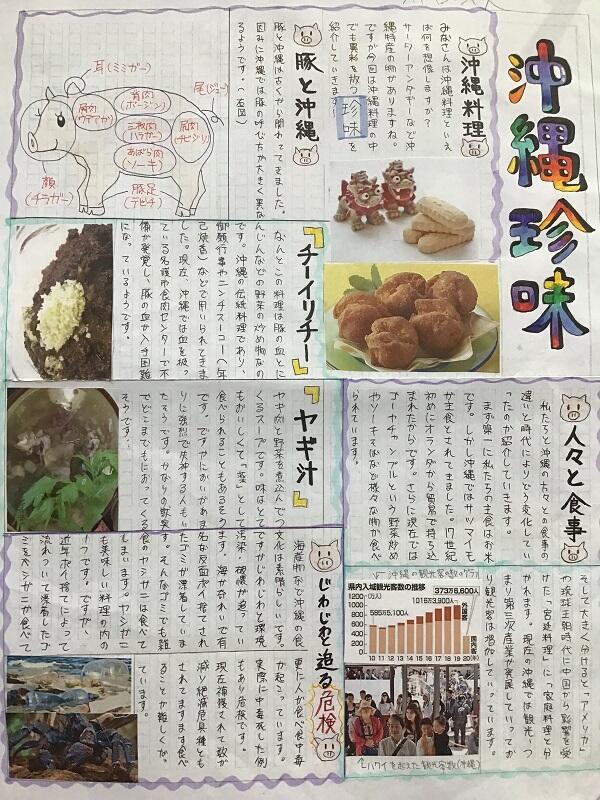 沖縄珍味
沖縄料理
みなさんは沖縄料理といえ
ば何を想像しますか？
サーターアンダギーなど沖
縄特産の物がありますね。
ですが今回は沖縄料理の中
でも異彩を放つ珍味を
紹介していきます！
豚と沖縄
豚と沖縄は古くから関わってきました。
因みに沖縄では豚の呼び方が大きく異な
るようです。（左図）
耳（ミミガー）
尾（ジュー）
肩肉
（ウデアカ）
背肉
（ボージシ）
三枚肉
ハラガー
あばら肉
（ソーキ）
尻肉
（チビジリ）
顔
（チラガー）
豚足
（テビチ）
『チーイリチー』
なんとこの料理は豚の血とに
んじんなどの野菜の炒め物なの
です。沖縄の伝統料理であり、
御願行事やニンジュースーコー（年
忌焼香）などで用いられてきま
した。現在、沖縄では血を扱っ
ている名護市食肉センターで不
備が発覚し、豚の血が入手困難
になっているようです。
『ヤギ汁』
ヤギ肉と野菜を煮込んでつ
くるスープです。味はとて
もおいしくて「薬」として
食べられることもあるそう
です。ですがにおいがあま
りに強烈で失神する人もい
たそうです。かなりの獣臭
でどこまでもにおってくる
そうです。
人々と食事
私たちと沖縄の方々との食事の
違いと時代によりどう変化してい
ったのか紹介していきます。
まず第一に私たちの主食はお米
です。しかし沖縄ではサツマイモ
が主食とされてきました。17世紀
初めにオランダから貿易で持ち込
まれたからです。さらに現在では
ゴーヤチャンプルという野菜炒め
やソーキそばなど様々な物が食べ
られています。
そして大きく分けると「アメリカ」
の琉球王朝時代に中国から影響を受
けた「宮廷料理」に「家庭料理と分
かれます。現在の沖縄では観光しつ
まり第三次産業が発展していってお
り観光客は増加していっています。
沖縄の観光客数のグラフ
県内入域観光客数の推移
373万6,600人
1016万3,900人
585万5,100人
1200(万人)
1000
800
600
400
200
0
10 11 12 13 14 15 16 17 18 19 20(年)
外国客
国内客
↑ハワイを超えた観光客数（沖縄）
じわじわと迫る危検
海産物など沖縄の食
文化は素晴らしいです。
ですがじわじわと環境
汚染・破壊が迫ってい
ます。海がきれいで有
名な反面ポイ捨てされ
たゴミが漂着していま
す。そんなゴミでも雑
食のヤシガニは食べて
しまいます。ヤシガニ
も美味しい料理の内の
一つです。ですが、
近年ポイ捨てによって
流れついて漂着したゴ
ミをヤシガニが食べて
更に人が食べ食中毒
が起こっています。
実際に中毒死した例
もあり危検です。
現在捕獲されて数が
減り絶滅危具種とも
されてますます食べ
ることが難しくなっ
ています。